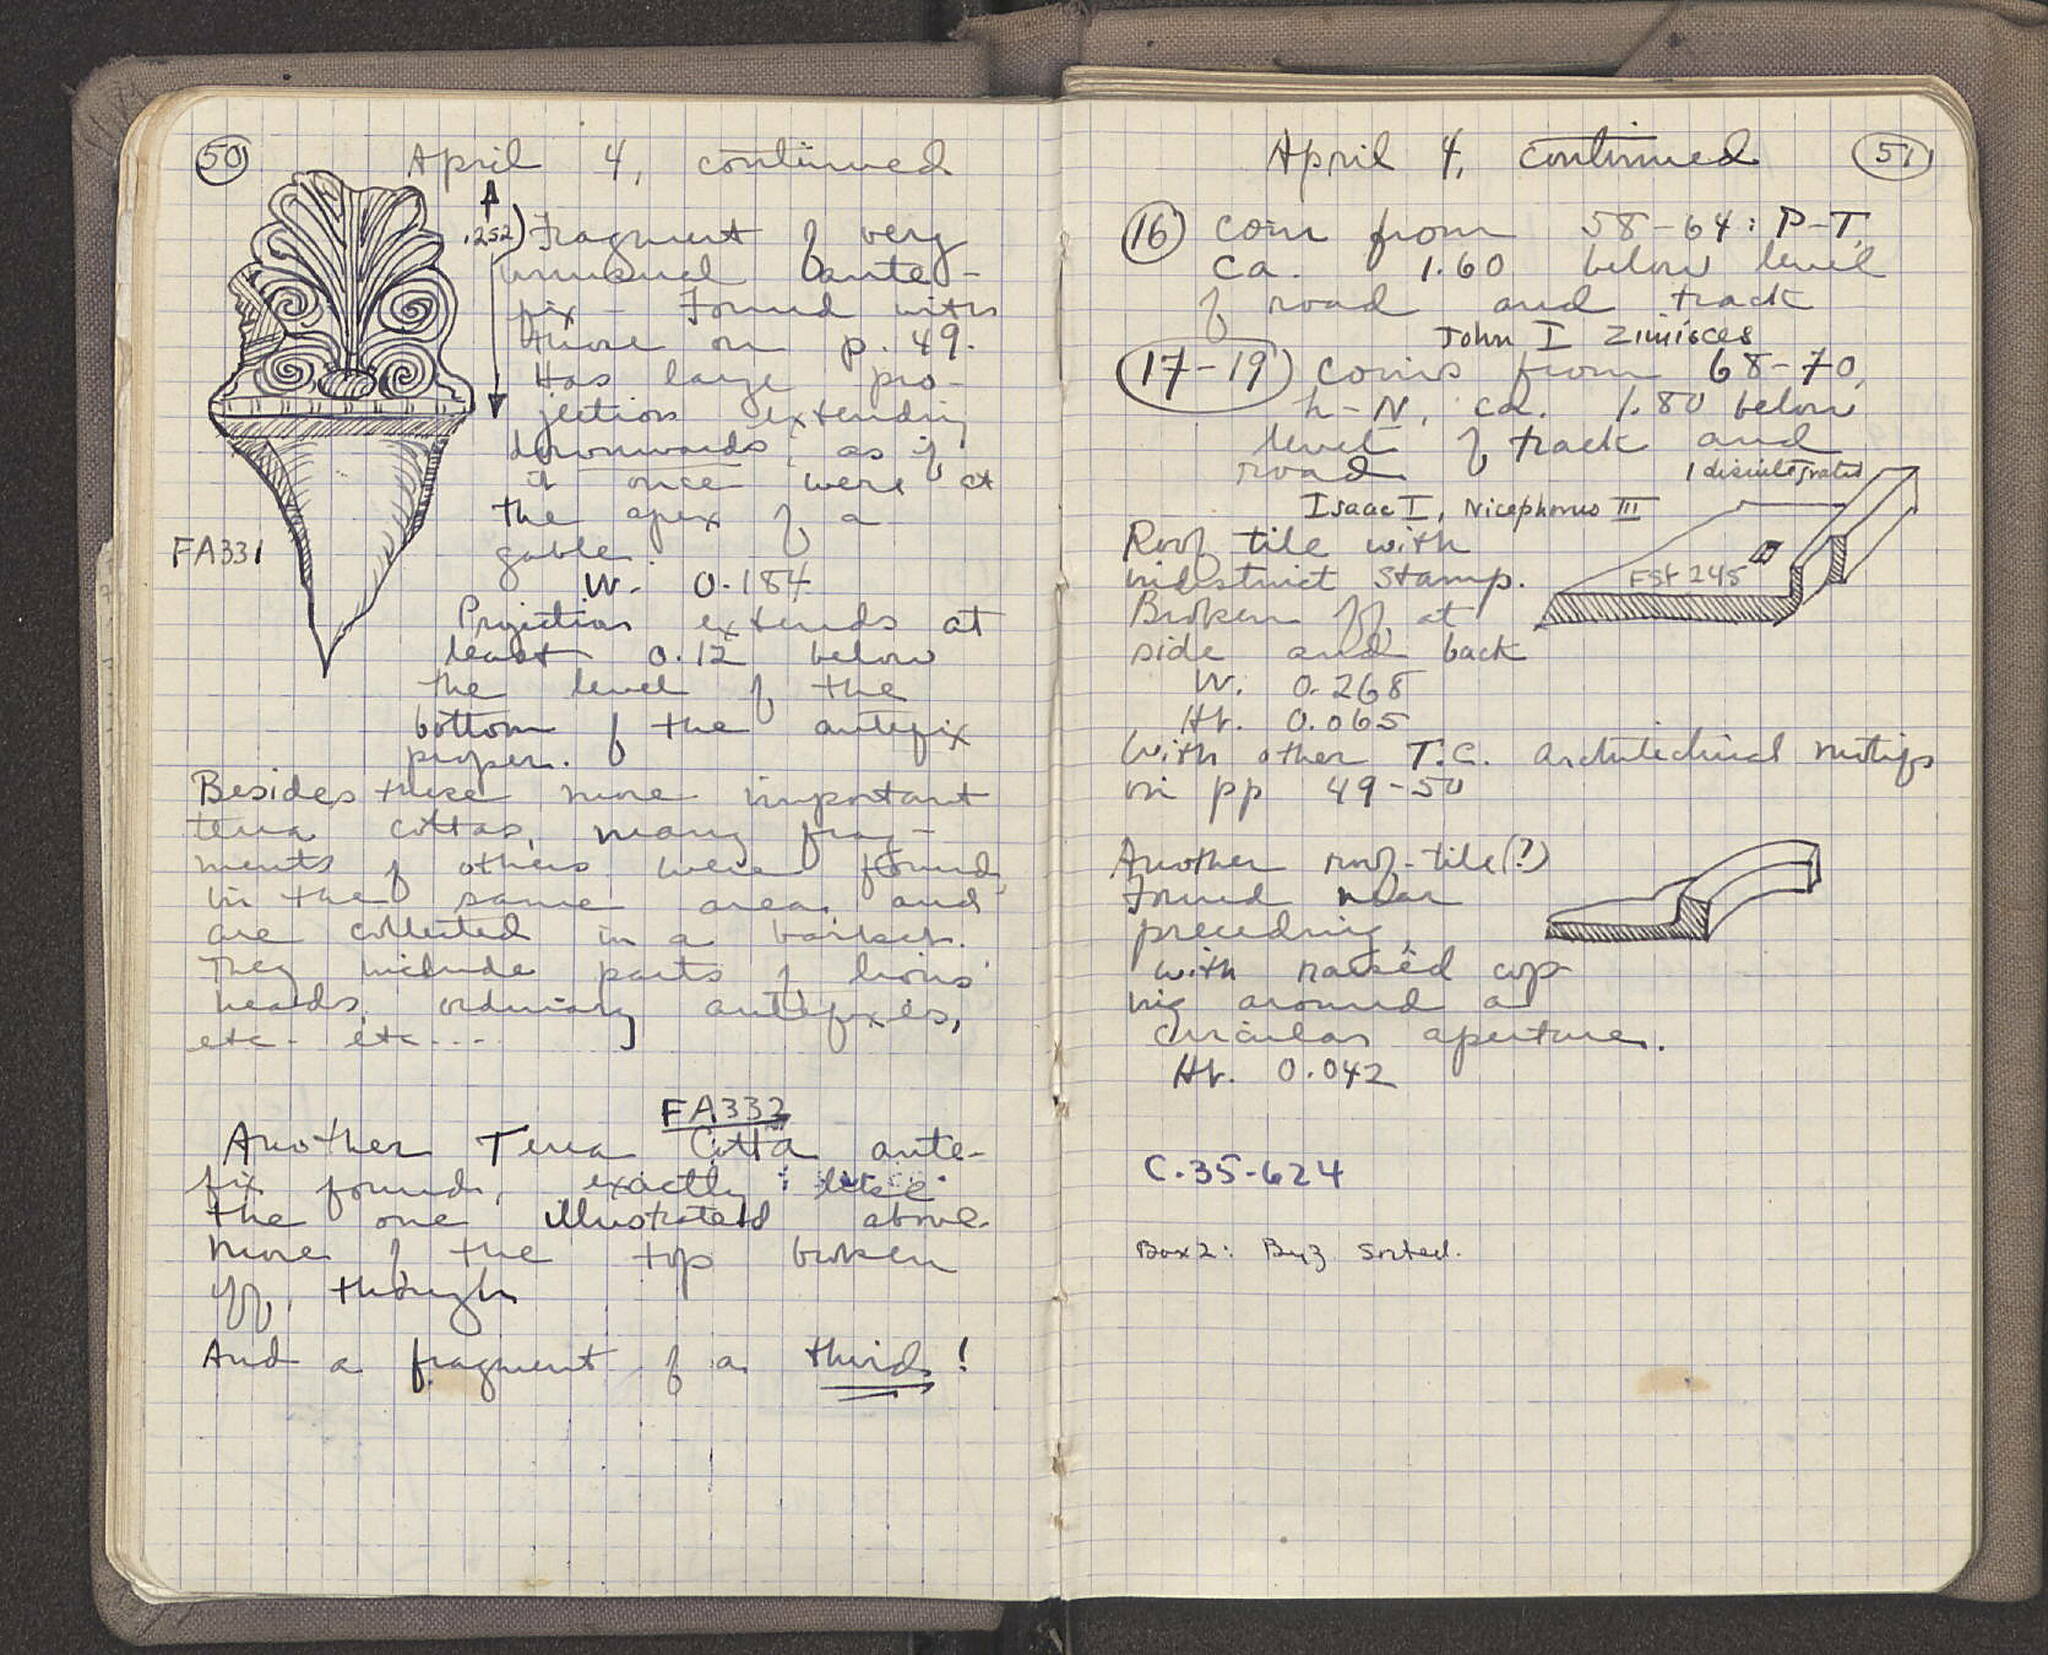 50
April 4, continued
.252
Fragment of very
unusual ante-
fix - Found with
those on p. 49.
Has large pro-
jection extending
downwards, as if
it once were at
the apex of a
gable.
FA331
W. 0.184
Projection extends at
least 0.12 below
the level of the
bottom of the antefix
proper.
Besides these more important
terra cottas, many frag-
ments of others were found
in the same area and
are collected in a basket.
They include parts of lions'
heads, ordinary antefixes,
etc. etc....
FA332
Another Terra Cotta ante-
fix found, exactly like
the one illustrated above.
more of the top broken
off, though
And a fragment of a third!
April 4, continued
51
16 coin from 58-64: P-T,
ca. 1.60 below level
of road and track
John I Zimisces
17-19 coins from 68-70,
h-N, ca. 1.80 below
level of track and
road
1 disintegrated
Isaac I, Nicephorus III
Roof tile with
indistinct stamp.
FSt 245
Broken off at
side and back
W. 0.268
Ht. 0.065
With other T.C. architectural motifs
on pp 49-50
Another roof-tile (?)
Found near
preceding,
with raised cop-
ing around a
circular aperture.
Ht. 0.042
C.35-624
Box 2: Byz sorted.